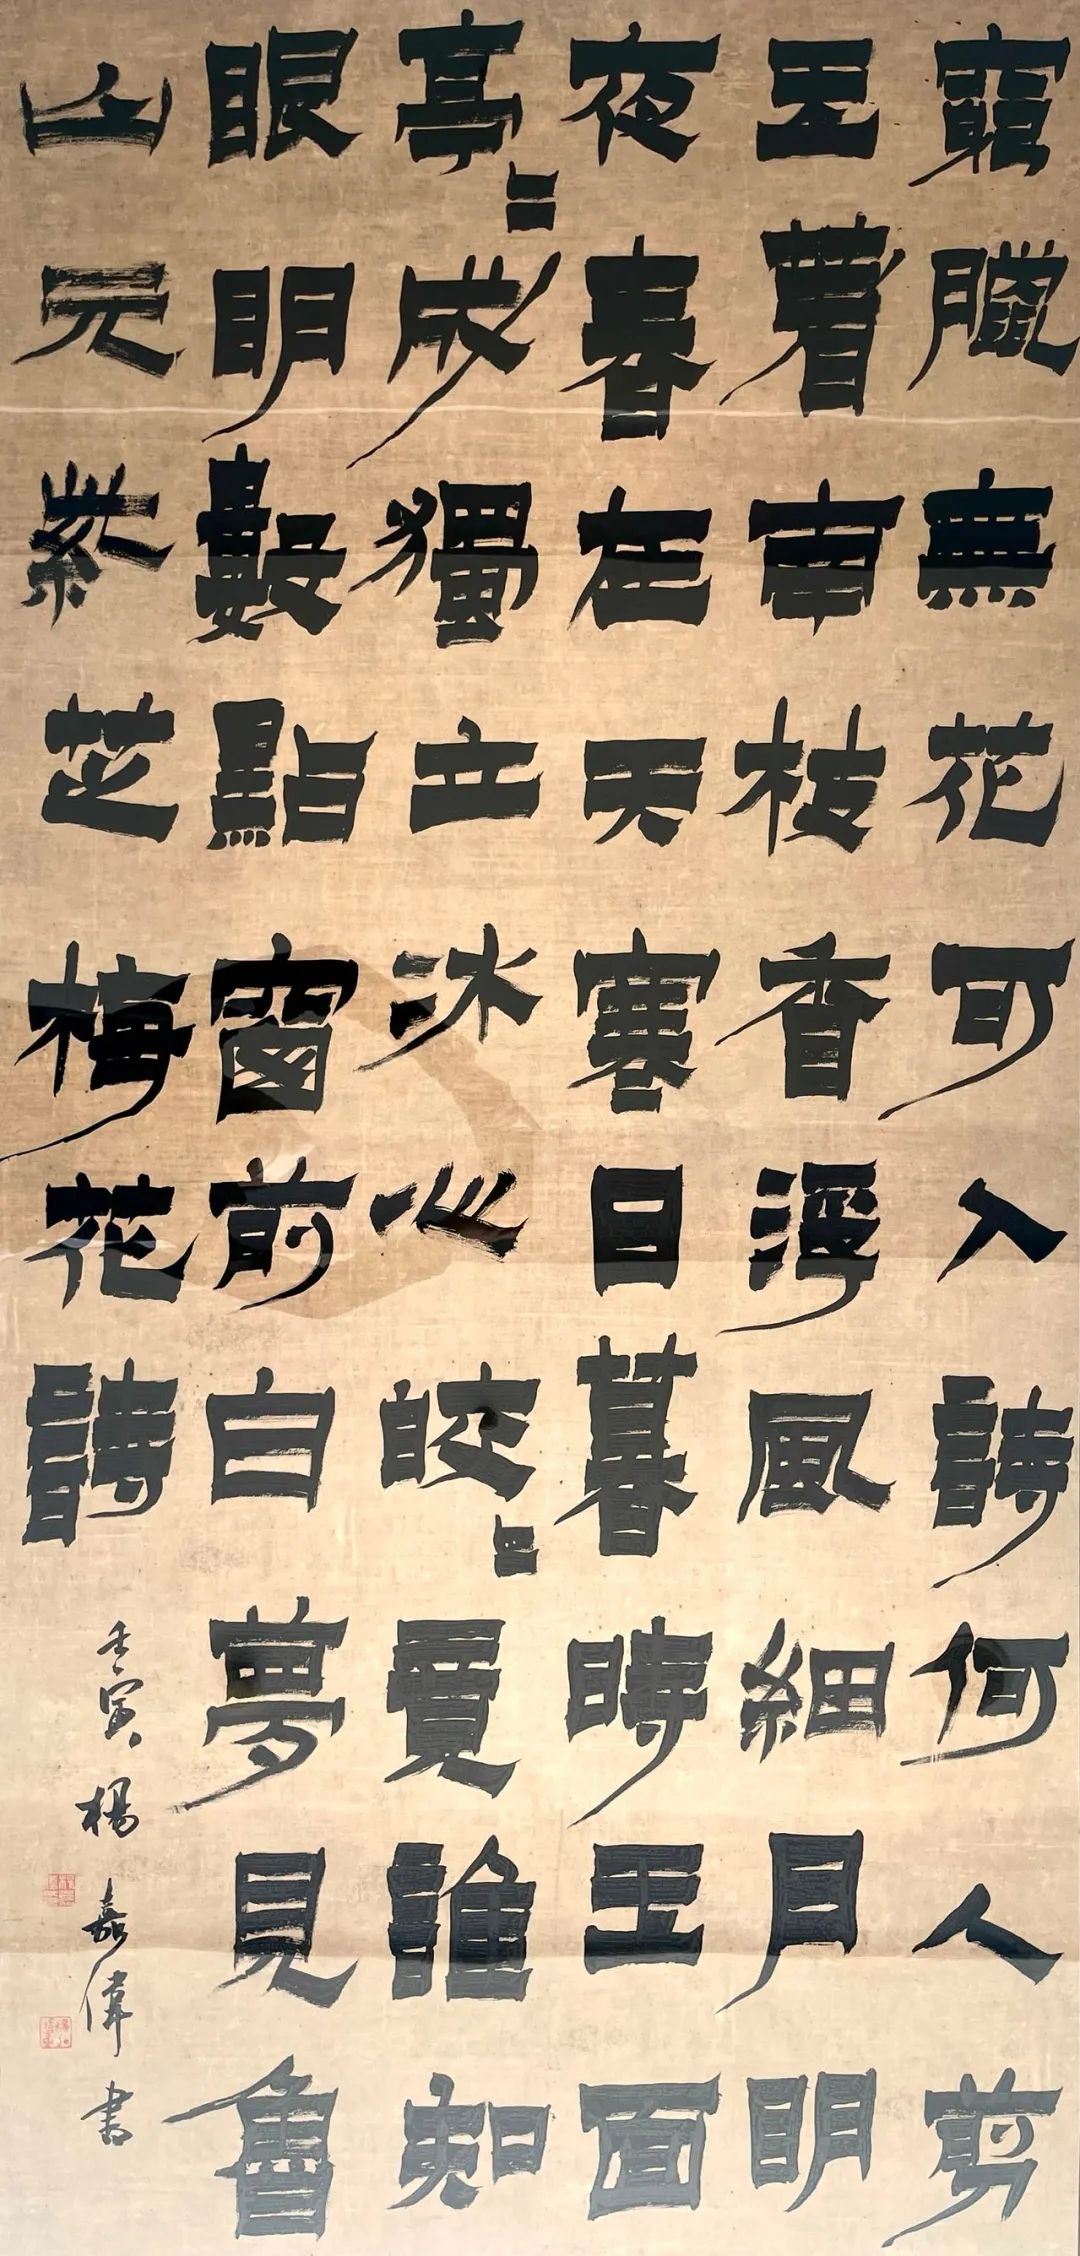 窮臘無花可入詩何人剪
玉著南枝香浮風細月明
夜春在天寒日暮時玉面
亭二成獨立冰心皎二誰知
眼明數點窗前白夢見魯
山元紫芝梅花詩
壬寅楊嘉偉書